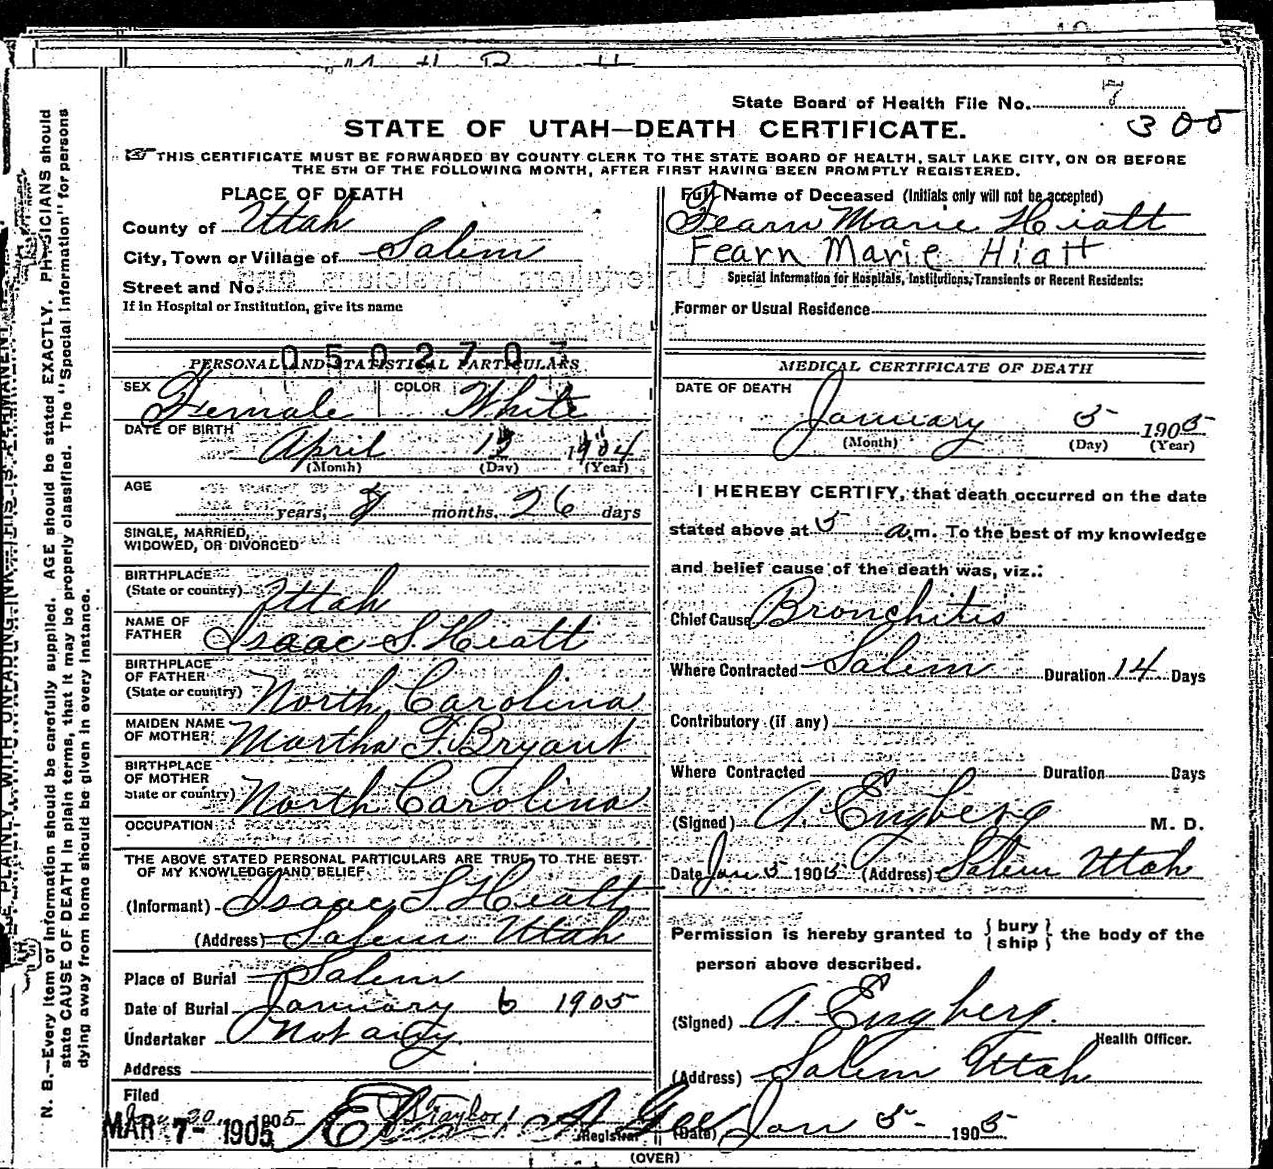 State Board of Health File No. 7
300
STATE OF UTAH—DEATH CERTIFICATE.
THIS CERTIFICATE MUST BE FORWARDED BY COUNTY CLERK TO THE STATE BOARD OF HEALTH, SALT LAKE CITY, ON OR BEFORE
THE 5TH OF THE FOLLOWING MONTH, AFTER FIRST HAVING BEEN PROMPTLY REGISTERED.
PLACE OF DEATH
County of Utah
City, Town or Village of Salem
Street and No.
If in Hospital or Institution, give its name
Full Name of Deceased (Initials only will not be accepted)
Fearn Marie Hiatt
Fearn Marie Hiatt
Special Information for Hospitals, Institutions, Transients or Recent Residents:
Former or Usual Residence
0502707
PERSONAL AND STATISTICAL PARTICULARS
SEX Female COLOR White
DATE OF BIRTH April 1904
(Month) (Day) (Year)
AGE
years, 8 months, 26 days
SINGLE, MARRIED,
WIDOWED, OR DIVORCED
BIRTHPLACE
(State or country) Utah
NAME OF
FATHER Isaac S. Hiatt
BIRTHPLACE
OF FATHER
(State or country) North Carolina
MAIDEN NAME
OF MOTHER Martha F. Bryant
BIRTHPLACE
OF MOTHER
State or country) North Carolina
OCCUPATION
THE ABOVE STATED PERSONAL PARTICULARS ARE TRUE TO THE BEST
OF MY KNOWLEDGE AND BELIEF.
(Informant) Isaac S Hiatt
(Address) Salem Utah
Place of Burial Salem
Date of Burial January 6 1905
Undertaker Not any
Address
Filed
1905
MAR 7- 1905
Registrar
MEDICAL CERTIFICATE OF DEATH
DATE OF DEATH
January 5 1905
(Month) (Day) (Year)
I HEREBY CERTIFY, that death occurred on the date
stated above at 5 a.m. To the best of my knowledge
and belief cause of the death was, viz.:
Chief Cause Bronchitis
Where Contracted Salem Duration 14 Days
Contributory (if any)
Where Contracted Duration Days
(Signed) A. Engberg M. D.
Date Jan 5 1905 (Address) Salem Utah
Permission is hereby granted to { bury ship } the body of the
person above described.
(Signed) A. Engberg.
Health Officer.
(Address) Salem Utah
(Date) Jan 5 1905
(OVER)
N. B.—Every item of information should be carefully supplied. AGE should be stated EXACTLY. PHYSICIANS should
state CAUSE OF DEATH in plain terms, that it may be properly classified. The "Special Information" for persons
dying away from home should be given in every instance.